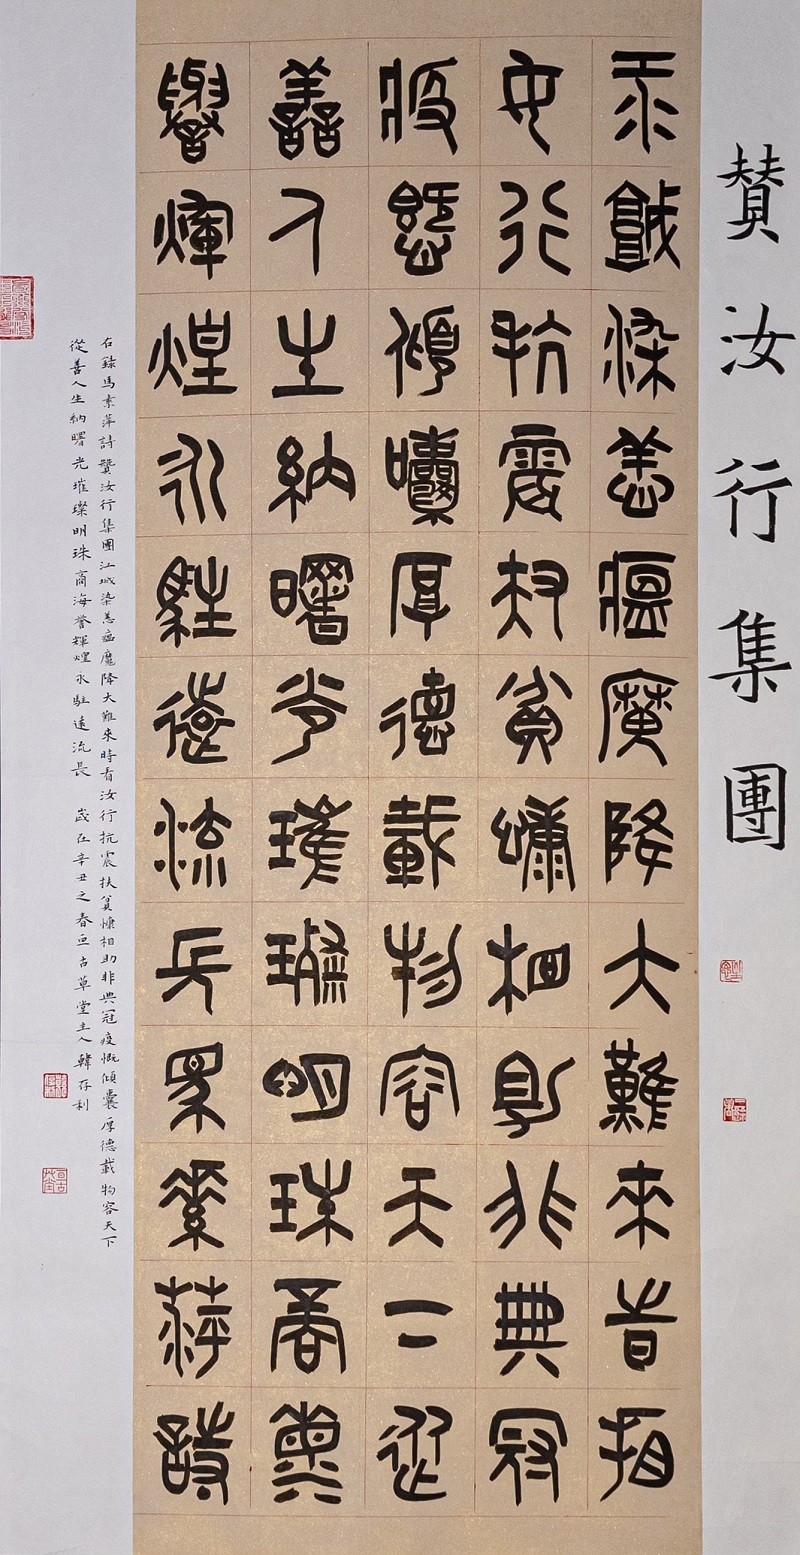 賛汝行集團
江城染恙瘟魔降大難來時看
汝行抗震扶貧慷相助非典冠
疫慨傾囊厚德載物容天下從
善人生納曙光璀璨明珠商海
譽煇煌永駐遠流長馬素萍詩
右錄馬素萍詩贊汝行集團江城染恙瘟魔降大難來時看汝行抗震扶貧慷相助非典冠疫慨傾囊厚德載物容天下
從善人生納曙光璀璨明珠商海譽輝煌永駐遠流長 歲在辛丑之春亘古草堂主人韓存利